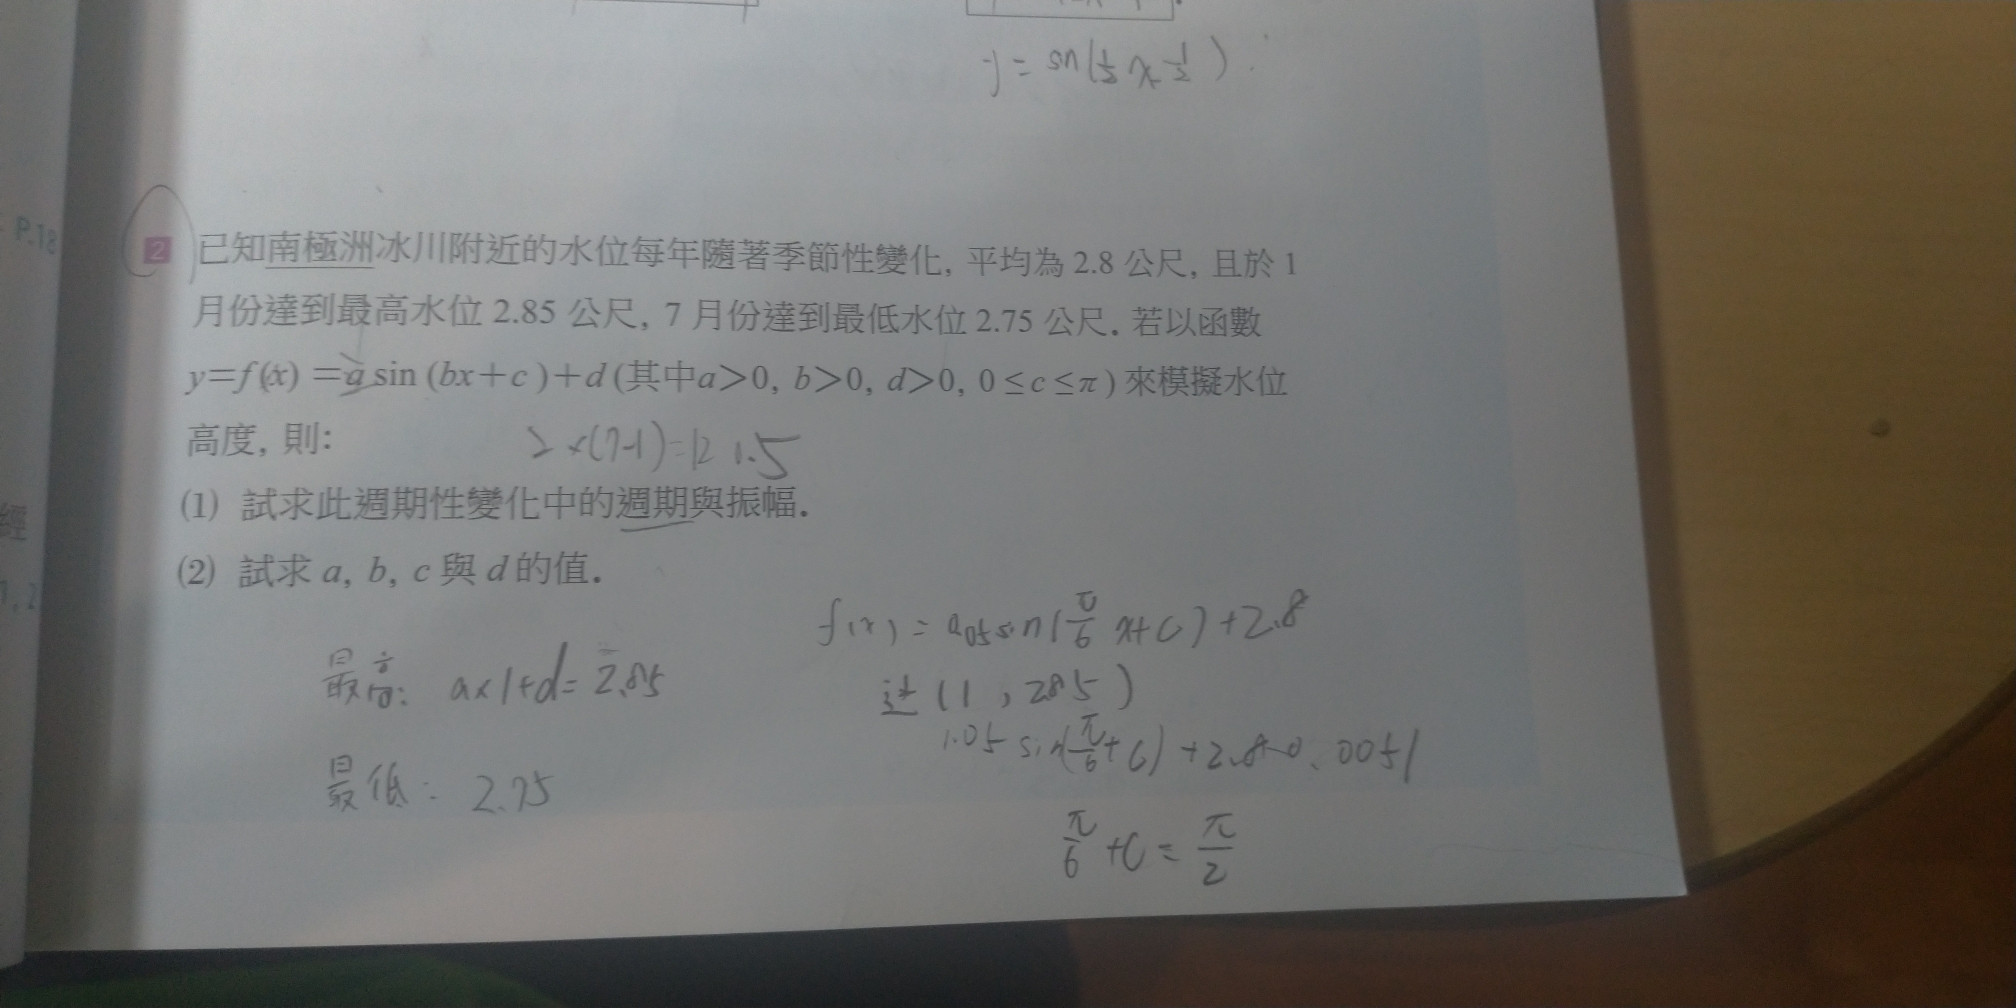 y = sin(½x-½)
P.18
2 已知南極洲冰川附近的水位每年隨著季節性變化, 平均為 2.8 公尺, 且於 1
月份達到最高水位 2.85 公尺, 7 月份達到最低水位 2.75 公尺. 若以函數
y=f(x)=a sin (bx+c)+d (其中a>0, b>0, d>0, 0≤c≤π) 來模擬水位
高度, 則:
2×(7-1)=12 1.5
(1) 試求此週期性變化中的週期與振幅.
經
(2) 試求 a, b, c 與 d 的值.
1, 2
最高: a×1+d=2.85
最低: 2.75
f(x) = 0.05 sin(π/6 x+c)+2.8
过(1, 2.85)
π/6 +c = π/2